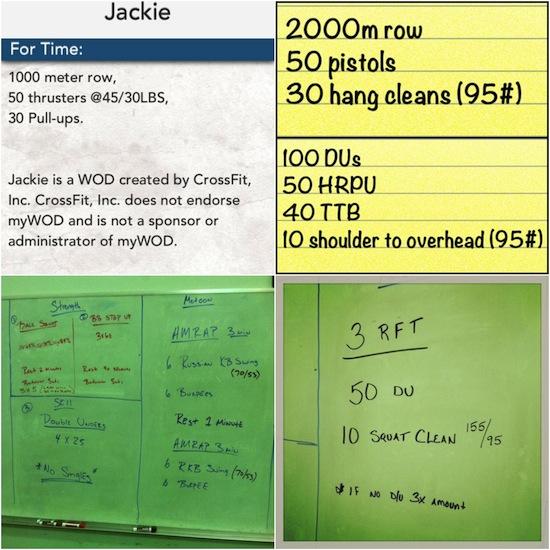 Jackie
For Time:
1000 meter row,
50 thrusters @45/30LBS,
30 Pull-ups.
Jackie is a WOD created by CrossFit,
Inc. CrossFit, Inc. does not endorse
myWOD and is not a sponsor or
administrator of myWOD.
2000m row
50 pistols
30 hang cleans (95#)
100 DUs
50 HRPU
40 TTB
10 shoulder to overhead (95#)
Strength
① Back Squat
Rest 2 minutes
② BB Step up
3x6s
③ Skill
Double Unders
4 x 25
*No Singles*
Metcon
AMRAP 3 min
6 Russian KB Swing
(70/53)
6 Burpees
Rest 1 Minute
AMRAP 3 min
6 RKB Swing (70/53)
6 Burpee
3 RFT
50 DU
10 Squat Clean 155/95
* If no D/U 3x amount